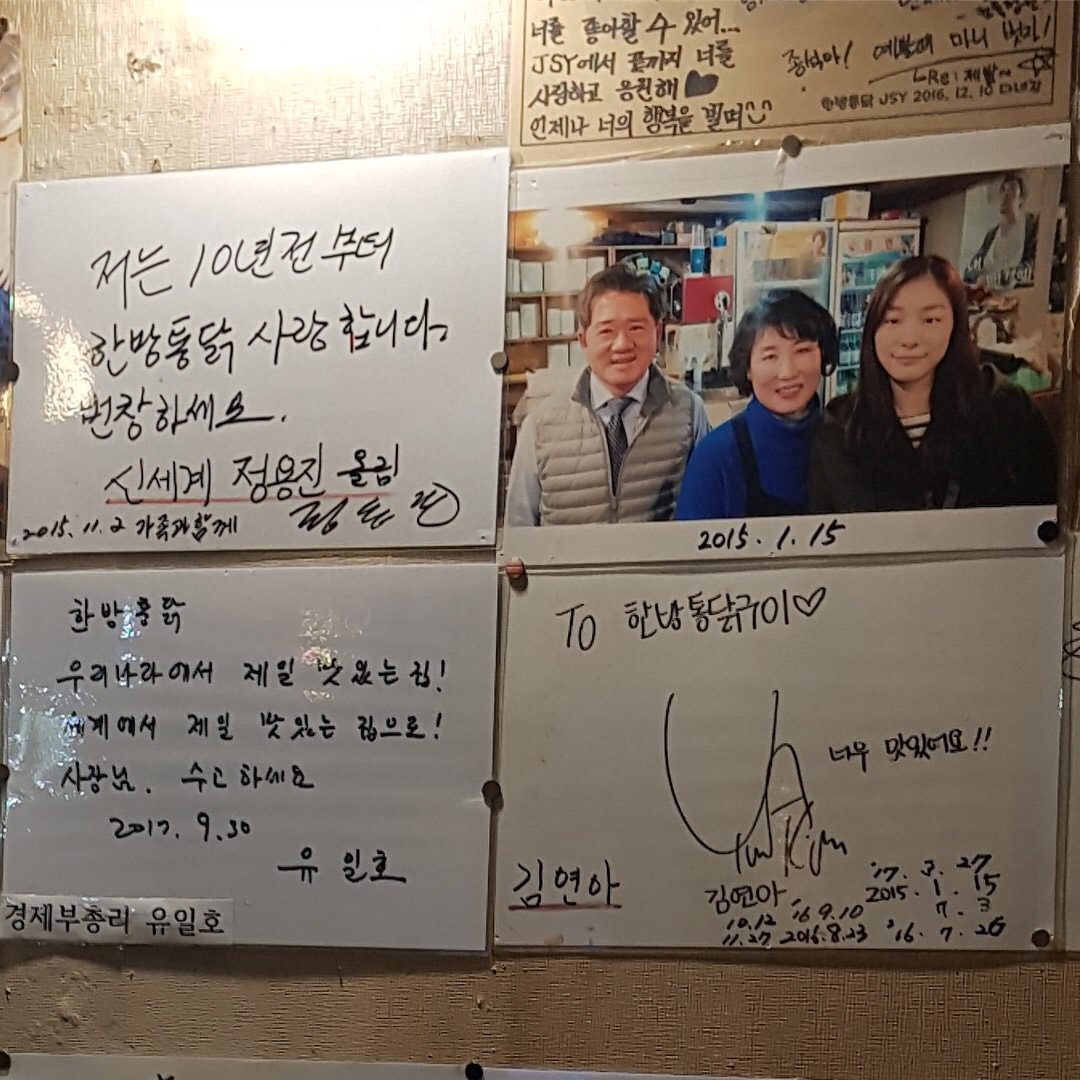 너를 좋아할 수 있어...
JSY에서 끝까지 너를
사랑하고 응원해
언제나 너의 행복을 빌며
종석아! 예쁘게 미니 벗지!
Re: 제발~
한방통닭 JSY 2016. 12. 10 다녀감
저는 10년전부터
한방통닭 사랑합니다.
번창하세요.
신세계 정용진 올림
2015. 11. 2 가족과 함께
2015. 1. 15
한방통닭
우리나라에서 제일 맛있는 집!
세계에서 제일 맛있는 집으로!
사장님. 수고하세요
2017. 9. 30
유일호
경제부총리 유일호
TO 한방통닭구이♡
너무 맛있어요!!
Yuna Kim
김연아
김연아.
'17. 3. 27
2015. 1. 15
7. 3
10.12 '16 9.10
11.27 2016.8.23 '16. 7. 26